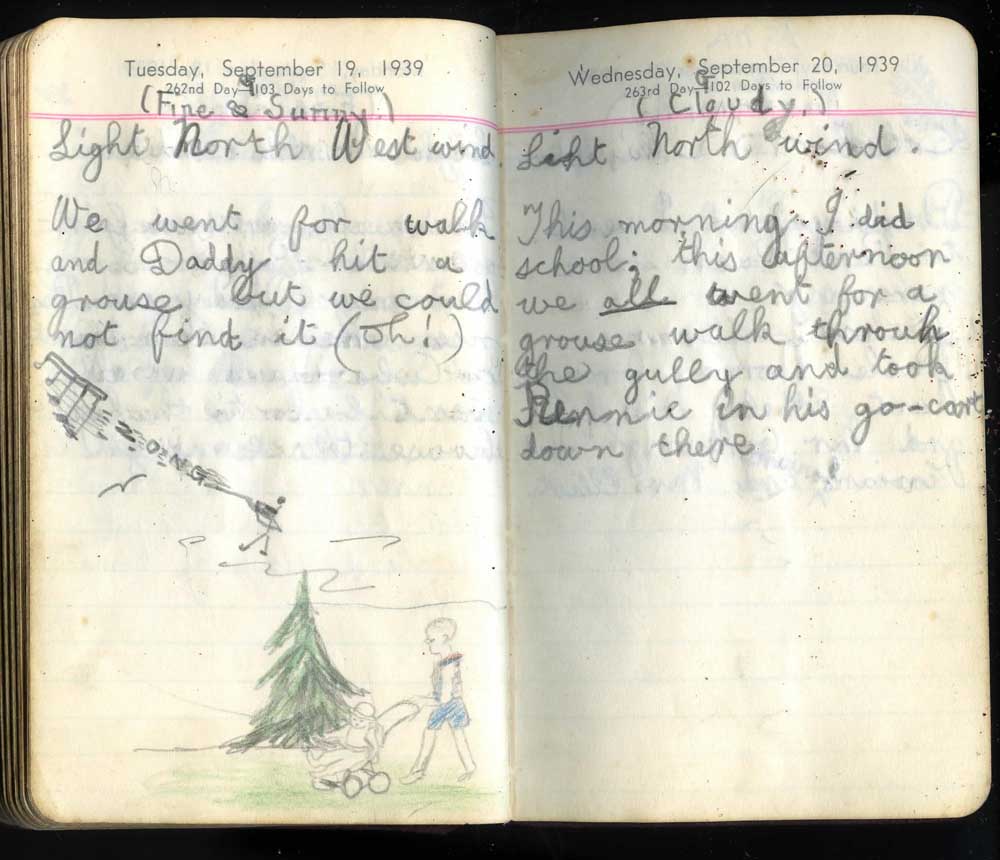 Tuesday, September 19, 1939
262nd Day—103 Days to Follow
(Fine & Sunny.)
Light North West wind
We went for walk
and Daddy hit a
grouse but we could
not find it (Oh!)
BOING
Wednesday, September 20, 1939
263rd Day—102 Days to Follow
(Cloudy.)
Liht North wind.
This morning I did
school; this afternoon
we all went for a
grouse walk throuh
the gully and took
Rennie in his go-cart
down there